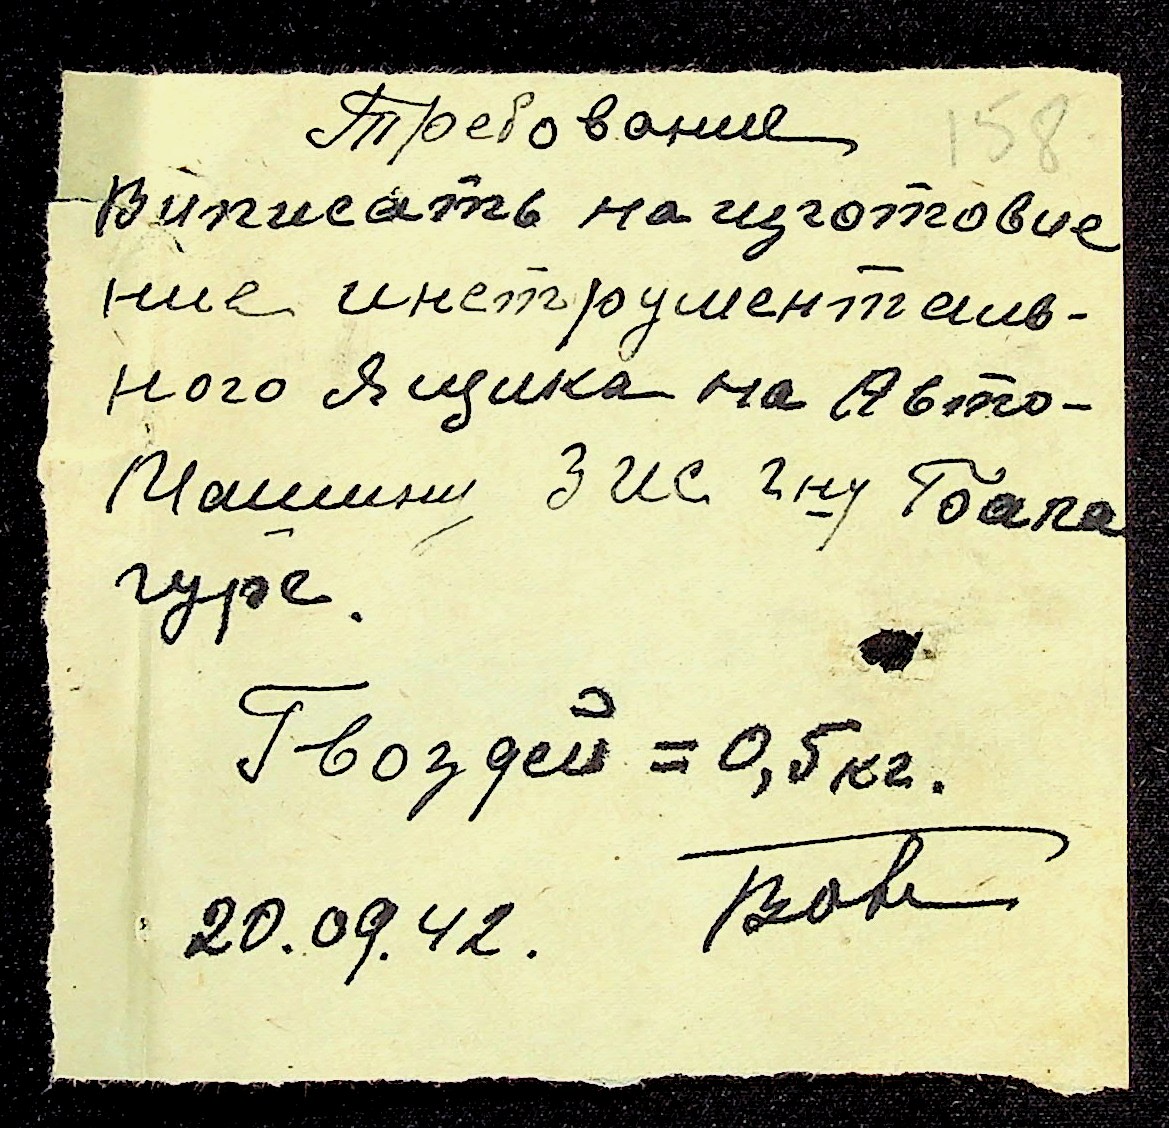 Требование
158
Виписать на изготовле
ние инструменталь-
ного ящика на Авто-
Машину ЗИС
гуре.
Гвоздей = 0,5 кг.
20.09.42.